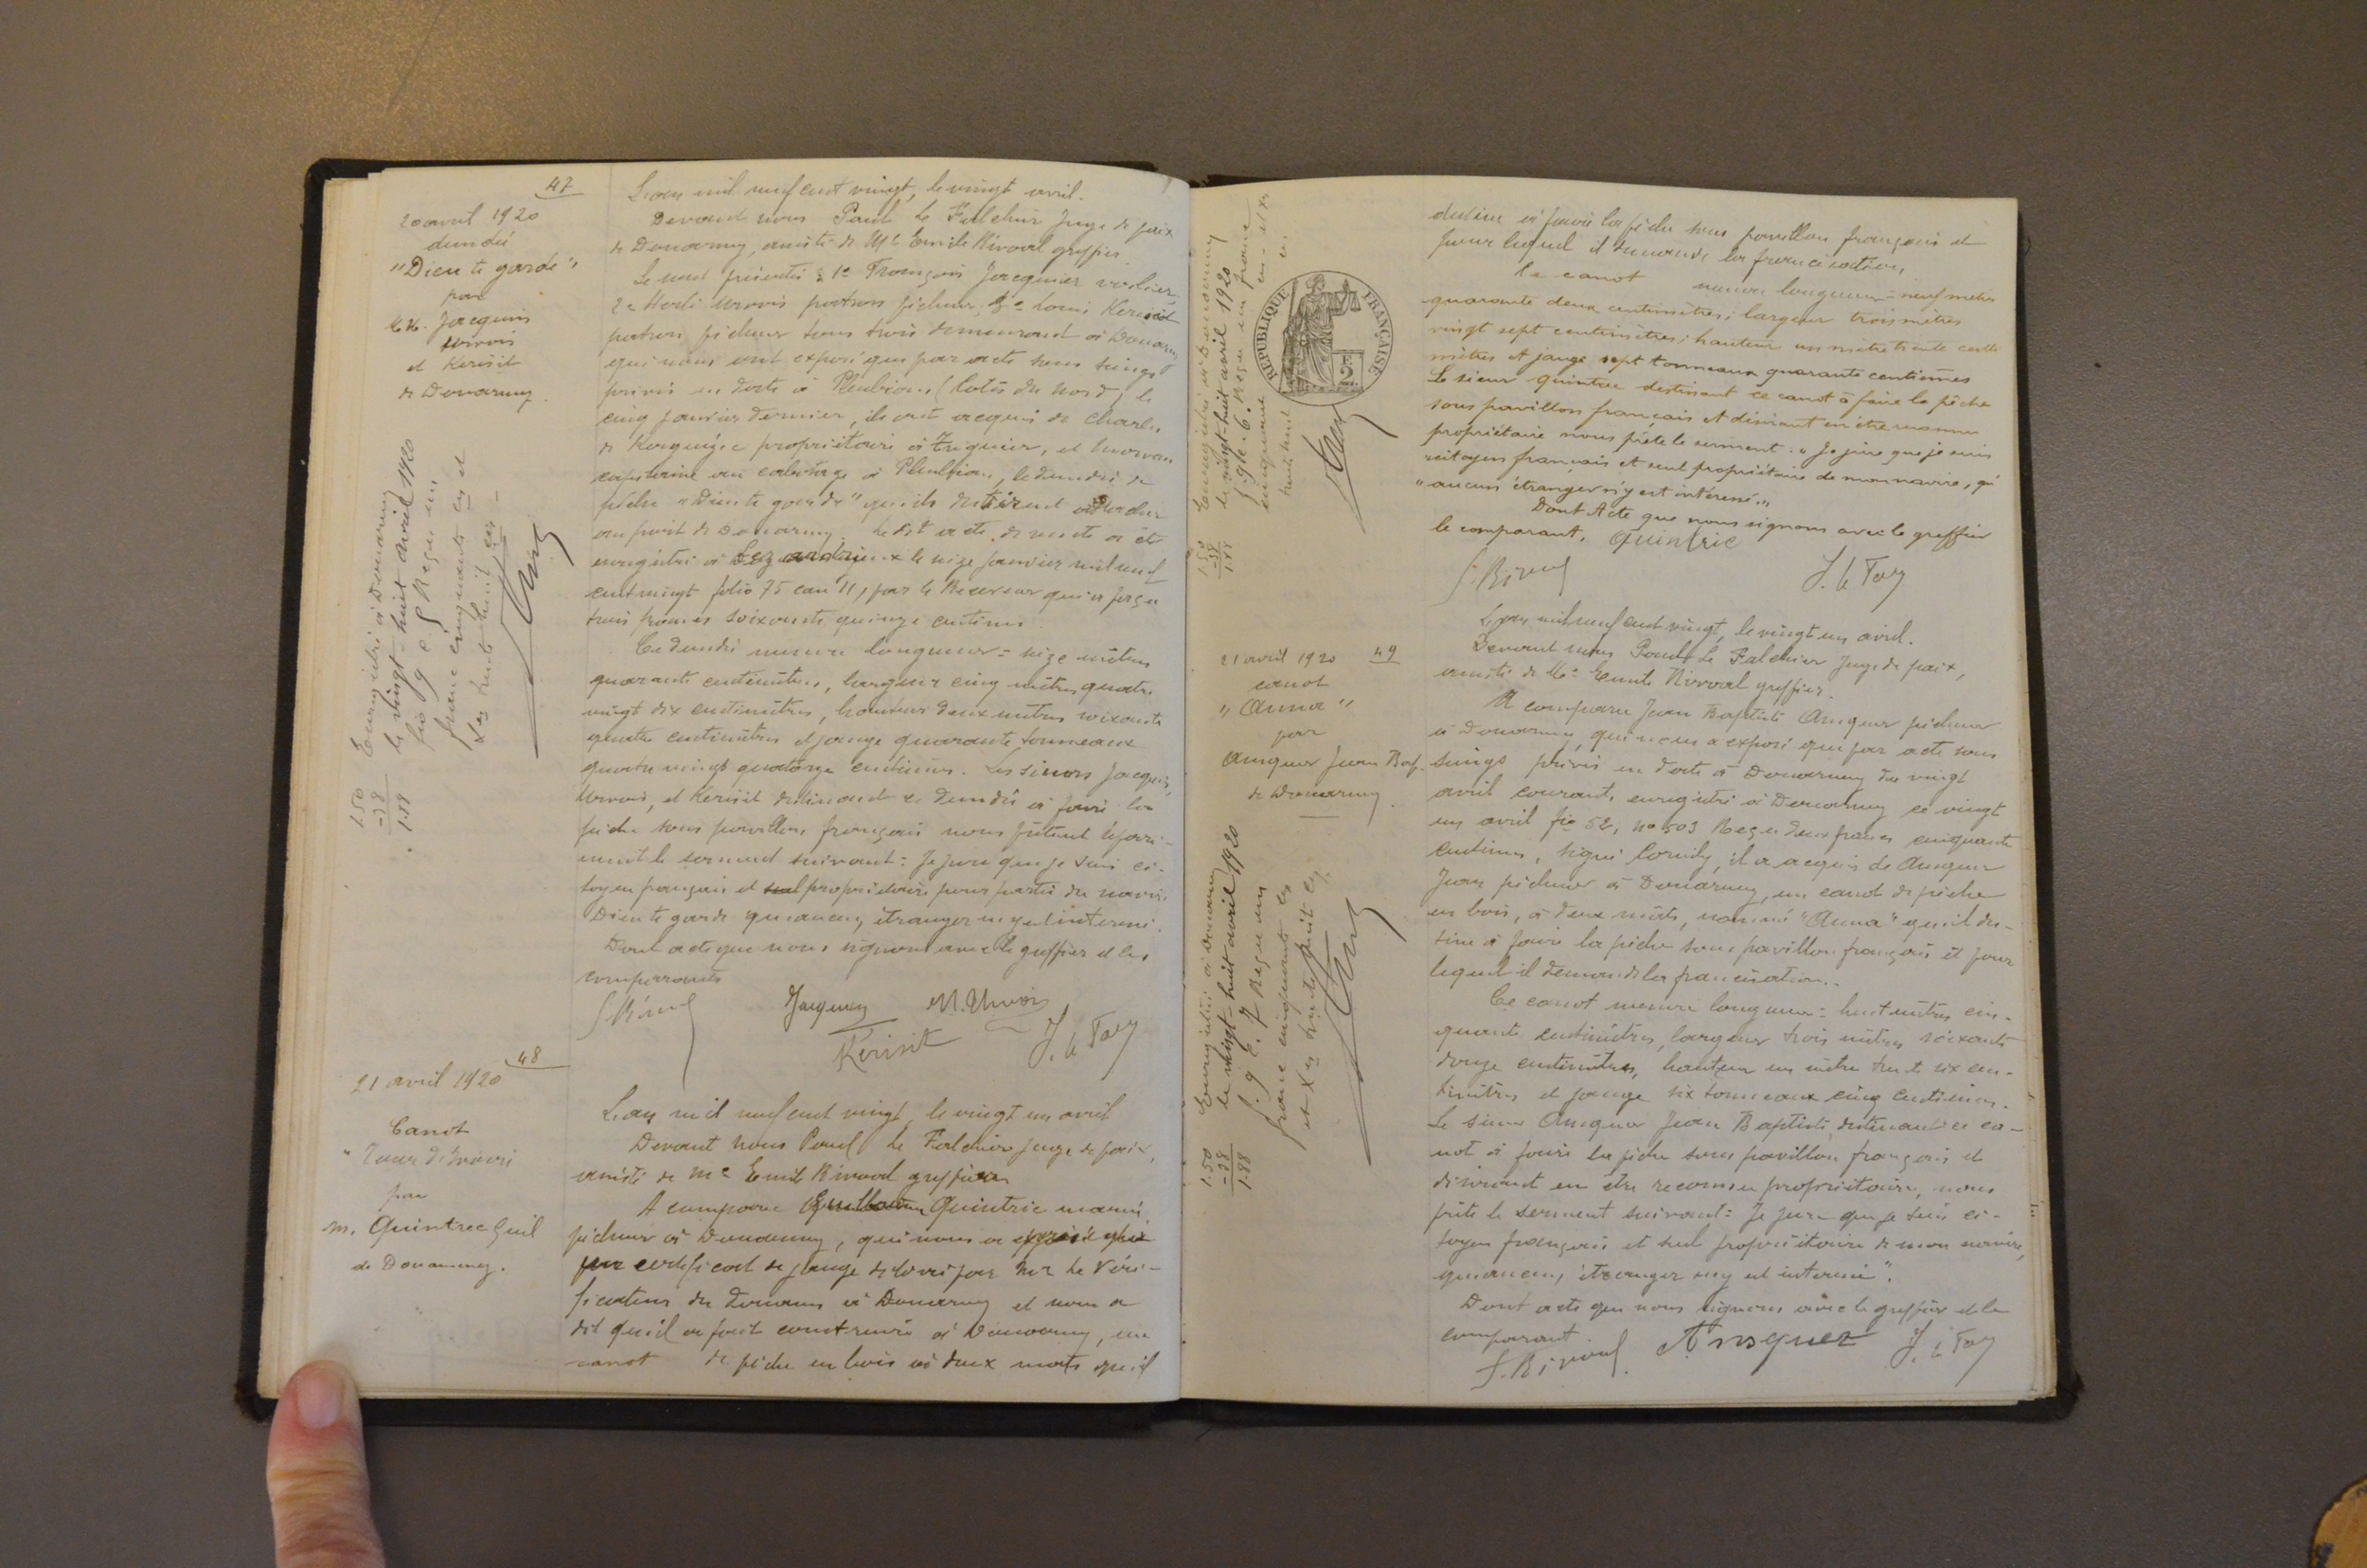 47
20 avril 1920
dundée
"Dieu te garde"
par
M.M. Jacquin
Urvois
et Kerisit
de Douarnenez.
Enregistré à Douarnenez
le vingt-huit avril 1920
franc cinquante ces et
1.50
-38
1.88
L'an mil neuf cent vingt, le vingt avril.
Devant nous Paul Le Falchier Juge de paix
de Douarnenez, assisté de Me Emile Rivoal greffier
Se sont présentés: 1o François Jacquin voilier,
patron pêcheur, 3o Louis Kerisit
patron pêcheur tous trois demeurant à Douarnenez
qui nous ont exposé que par acte sous seings
privés en date à Pleubian (Côtes du Nord) le
cinq janvier dernier, ils ont acquis de Charles
propriétaire à Tréguier, et
capitaine au cabotage à Pleubian, le dundée de
pêche "Dieu te garde" qu'ils
au port de Douarnenez. Le dit acte de vente a été
enregistré à Lezardrieux le seize janvier mil neuf
cent vingt folio 75 case 11, par le Receveur qui a perçu
trois francs soixante quinze centimes.
Ce dundée mesure longueur = seize mètres
quarante centimètres, largeur cinq mètres quatre
vingt dix centimètres, hauteur deux mètres soixante
quatre centimètres et jauge quarante tonneaux
quatre vingt quatorze centièmes. Les sieurs Jacquin,
Urvois, et Kerisit destinant ce dundée à faire la
pêche sous pavillon français nous prêtent séparé-
ment le serment suivant: Je jure que je suis ci-
toyen français et seul propriétaire pour partie du navire
Dieu te garde qu'aucun étranger n'y est intéressé.
Dont acte que nous signons avec le greffier et les
comparants
Jacquin M. Urvois
Kerisit
48
21 avril 1920
Canot
par
M. Quintrec Guil
de Douarnenez.
L'an mil neuf cent vingt, le vingt un avril
Devant nous Paul Le Falchier juge de paix,
assisté de Me Emile Rivoal greffier
A comparu Guillaume Quintric marin
pêcheur à Douarnenez, qui nous a exposé que
par certificat de jauge délivré par Mr le Véri-
ficateur des douanes à Douarnenez et nous a
dit qu'il a fait construire à Douarnenez, un
canot de pêche en bois à deux mats qu'il
REPUBLIQUE FRANÇAISE
2
Enregistré à Douarnenez
le vingt-huit avril 1920
1.50
-38
1.88
destine à faire la pêche sous pavillon français et
pour lequel il demande la francisation.
Ce canot mesure longueur = neuf mètres
quarante deux centimètres; largeur trois mètres
vingt sept centimètres; hauteur un mètre trente centi-
mètres et jauge sept tonneaux quarante centièmes
Le sieur Quintrec destinant ce canot à faire la pêche
sous pavillon français et désirant en être reconnu
propriétaire nous prête le serment: "Je jure que je suis
citoyen français et seul propriétaire de mon navire, qu'
"aucun étranger n'y est intéressé."
Dont Acte que nous signons avec le greffier
le comparant. Quintric
21 avril 1920
49
canot
"Anna"
par
Ansquer Jean Bap.
de Douarnenez.
Enregistré à Douarnenez
le vingt-huit avril 1920
1.50
-38
1.88
L'an mil neuf cent vingt, le vingt un avril.
Devant nous Paul Le Falchier Juge de paix,
assisté de Me Emile Rivoal greffier.
A comparu Jean Baptiste Ansquer pêcheur
à Douarnenez, qui nous a exposé que par acte sous
seings privés en date à Douarnenez du vingt
avril courant, enregistré à Douarnenez ce vingt
un avril fio 52, no 503 Reçu deux francs cinquante
centimes, signé il a acquis de Ansquer
Jean pêcheur à Douarnenez, un canot de pêche
en bois, à deux mâts, nommé "Anna" qu'il des-
tine à faire la pêche sous pavillon français et pour
lequel il demande la francisation.
Ce canot mesure longueur = huit mètres cin-
quante centimètres, largeur trois mètres soixante
douze centimètres, hauteur un mètre trente six cen-
timètres et jauge six tonneaux cinq centièmes.
Le sieur Ansquer Jean Baptiste, destinant ce ca-
not à faire la pêche sous pavillon français et
désirant en être reconnu propriétaire, nous
prête le serment suivant: Je jure que je suis ci-
toyen français et seul propriétaire de mon navire,
qu'aucun étranger n'y est intéressé".
Dont acte que nous signons avec le greffier et le
comparant.
Ansquer